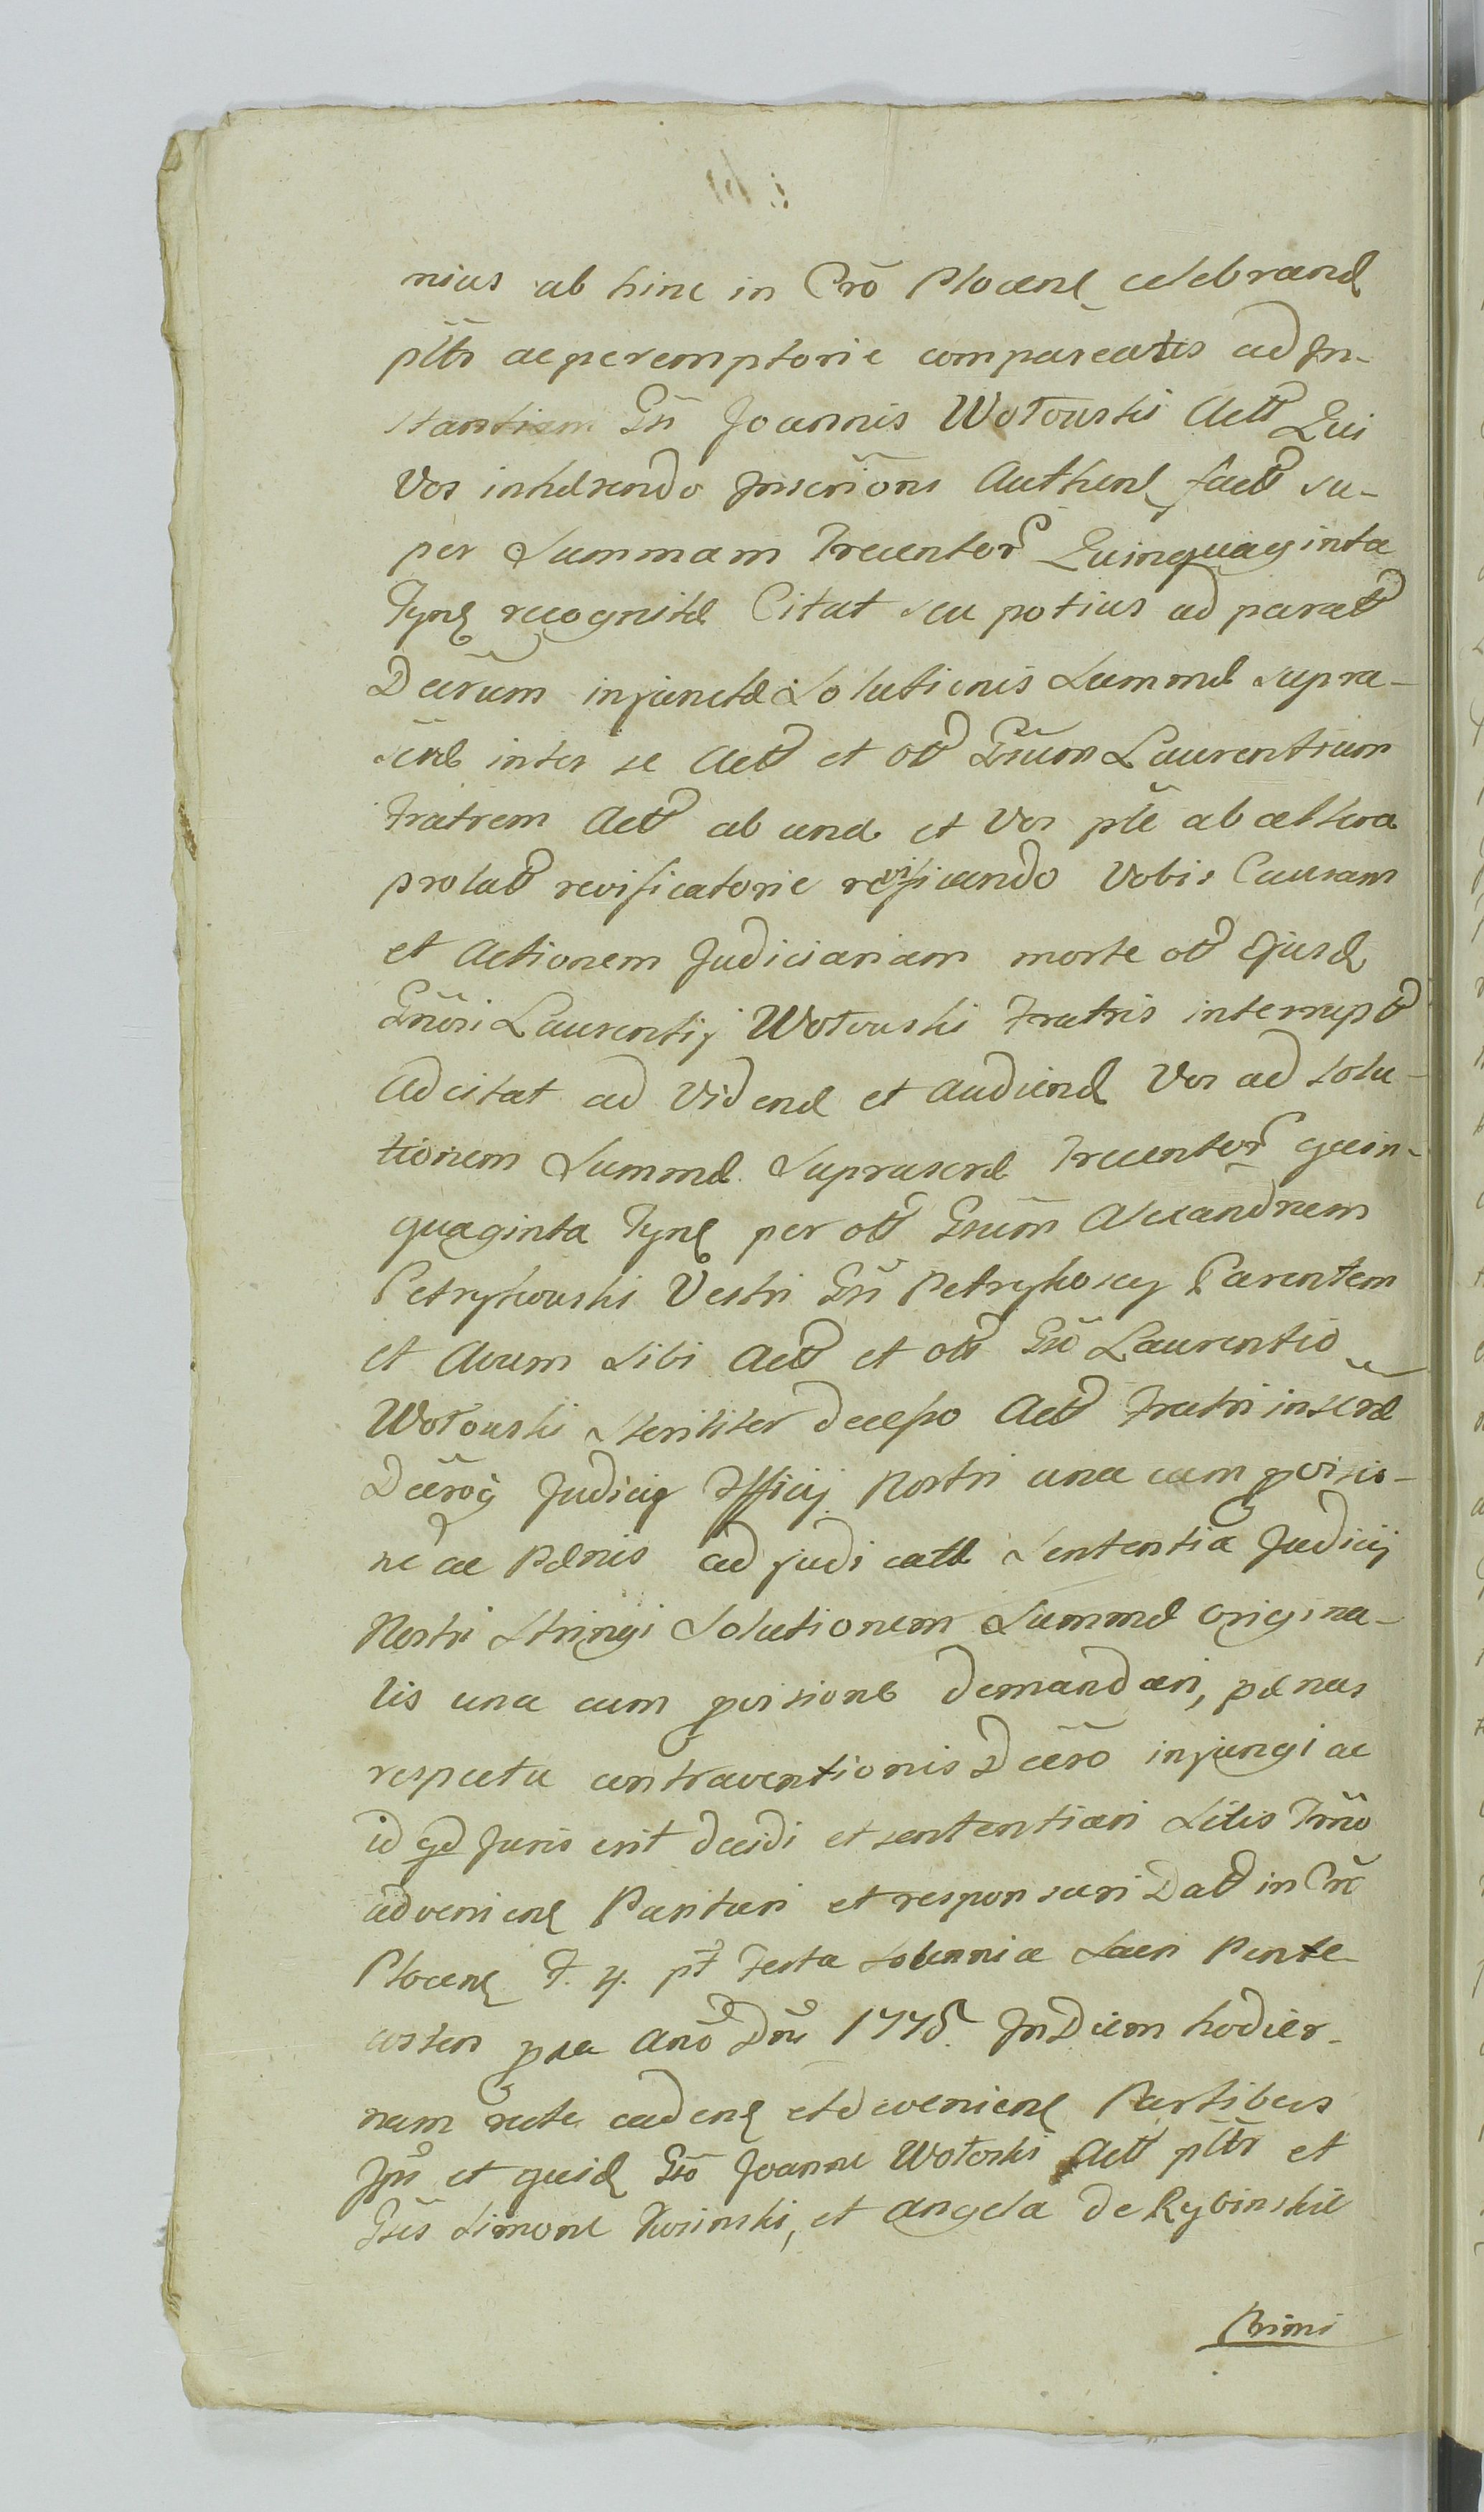 nius ab hinc in Crõ Plocens celebrand
pttr ac peremptorie compareatis ad In-
stantiam Gñ Joannis Wołowski Actt Qui
Vos inhærendo Inscriõni Authent fact su-
per Summam Trecentor Quinquaginta
Tynf recognitæ Citat seu potius ad parat
Decrum injunctæ Solutionis Summæ supra-
scræ inter se Actt et ott Gsum Laurentium
Fratrem Actt ab una et Vos pte ab altera
prolatt revificatorie revificando Vobis Causam
et Actionem Judiciariam morte ott Ejusd
Gnosi Laurentij Wołowski Fratris interrupt
Adcitat ad Vidend et Audiend Vos ad solu-
tionem Summæ Suprascræ Trecentor quin-
quaginta Tynf per ott Gsum Alexandrum
Petrykowski Vestri Gsi Petrykoscy Parentem
et Avum Sibi Actt et ott Gso Laurentio
Wołowski Steriliter decesso Actt Fratri inscræ
Decroq Judicij Officij Nostri una cum pvisio-
ne ac Pænis adjudicatæ Sententia Judicij
Nostri Stringi Solutionem Summæ origina-
lis una cum pvisione demandari, pænas
respectu contraventionis Decro injungi ac
id qd Juris erit decidi et sententiari Litis Trno
advenien Parituri et responsuri Datt in Crõ
Plocens F. 4. pt Festa Solennia Sacri Pente
costes pxa Ano Dni 1775. In Diem hodier-
nam recte caden et devenien Partibus
Ips et quid Gso Joanne Wołoski Actt pttr et
Gsis Simone Kosinski, et Angela de Rybinskie
Primi